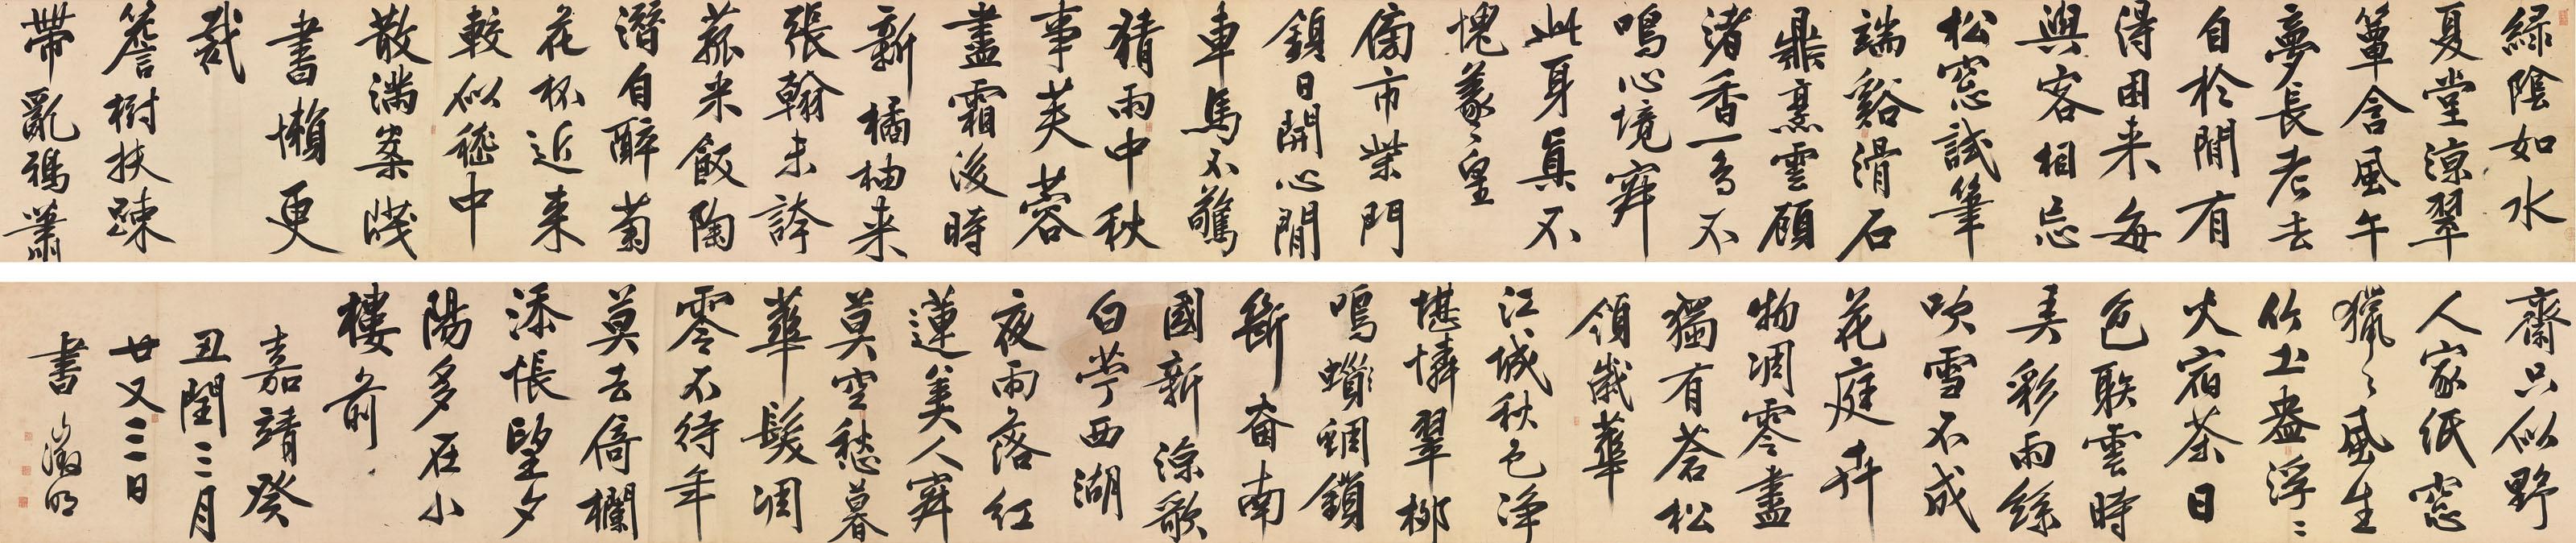 綠陰如水
夏堂涼翠
簟含風午
夢長老去
自於閒有
得困来每
與客相忘
松窓試筆
端谿滑石
鼎烹雲顧
渚香一鳥不
鳴心境寂
此身真不
愧羲〻皇
傍市柴門
鎖日開心閒
車馬不驚
猜雨中秋
事芙蓉
盡霜後時
新橘柚来
張翰未誇
菰米飯陶
潛自醉菊
花杯近来
較似嵇中
散滿案牋
書懶更
裁
簷樹扶疎
帶亂鴉蕭
齋只似野
人家紙窓
獵〻風生
竹土盎浮〻
火宿茶日
色聀雲時
弄彩雨絲
吹雪不成
花庭卉
物凋零盡
獨有蒼松
領歲華
江城秋色淨
堪憐翠柳
鳴蜩鎖
斷畨南
國新涼歌
白苧西湖
夜雨落紅
蓮美人寂
莫空愁暮
華髮凋
零不待年
莫去倚欄
添悵望夕
陽多在小
樓前
嘉靖癸
丑閏三月
廿又三日
書 徵明